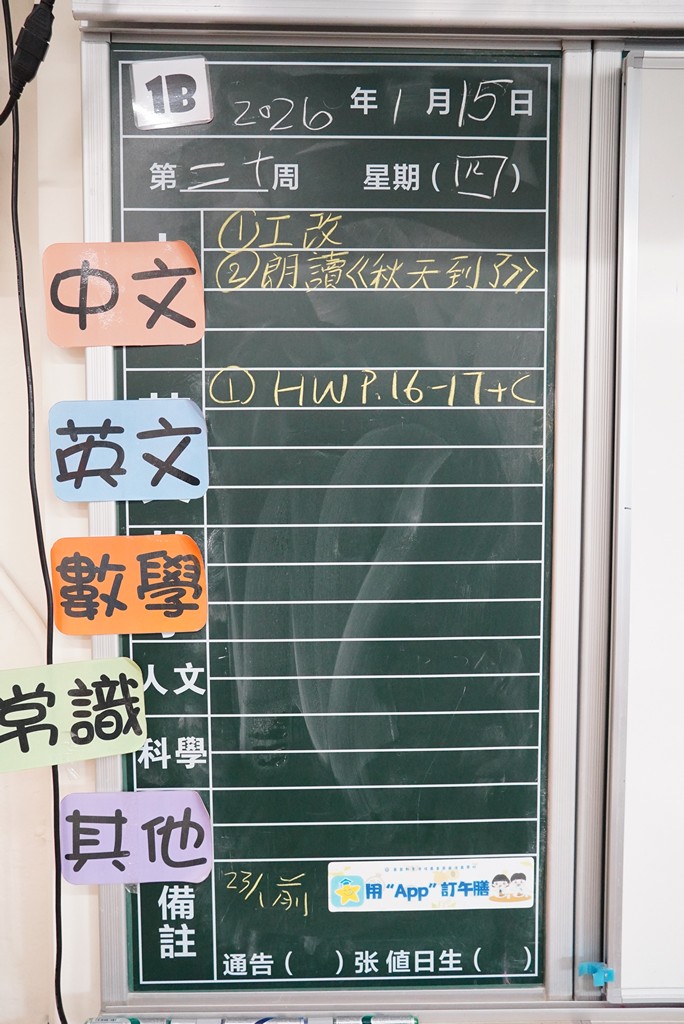 1B 2026 年 1 月 15 日
第 二十 周 星期 ( 四 )
中文
① 工改
② 朗讀《秋天到了》
英文
① HW P.16-17+C
數學
人文
常識
科學
其他
備註
23/1前
用 “App” 訂午膳
通告 ( ) 张 值日生 ( )